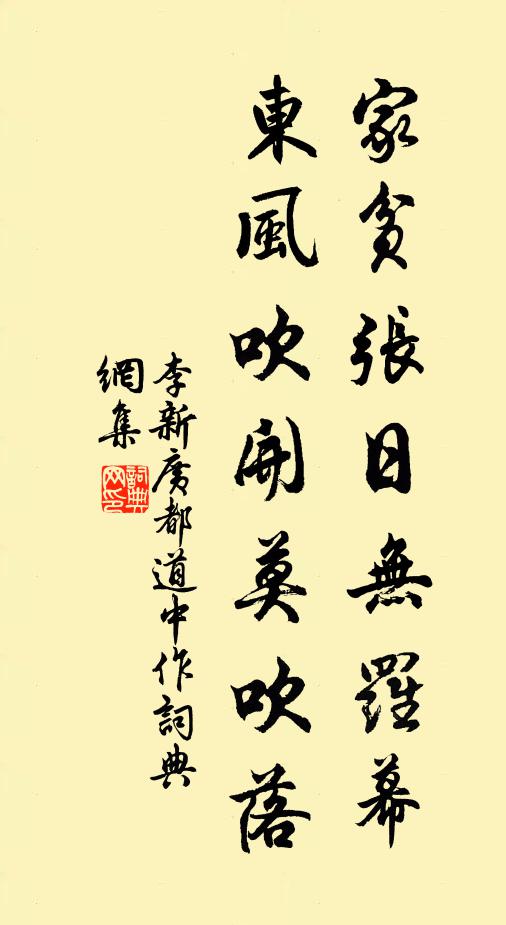 家貧張日無羅幕
東風吹開莫吹落
李新廣都道中作詞典
網集
詞典
网印